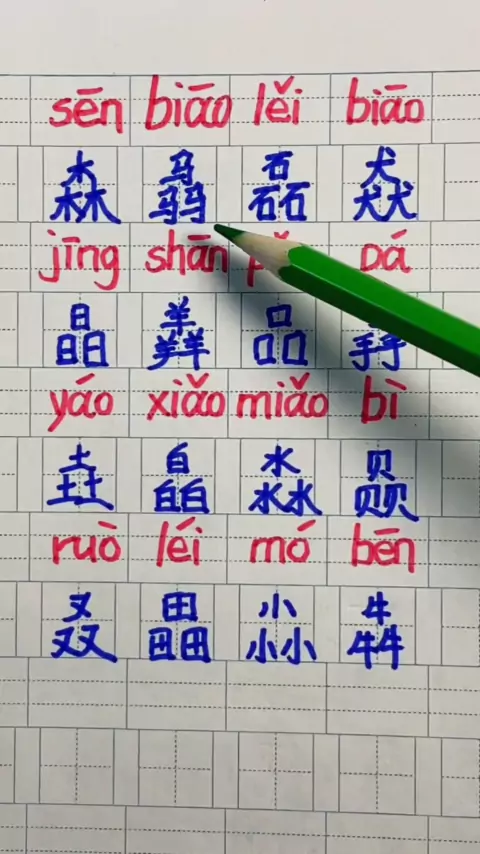 sēn biāo lěi biāo
森 骉 磊 猋
jīng shān pá
晶 羴 品 掱
yáo xiǎo miǎo bì
垚 皛 淼 赑
ruò léi mó bēn
叒 畾 尛 犇